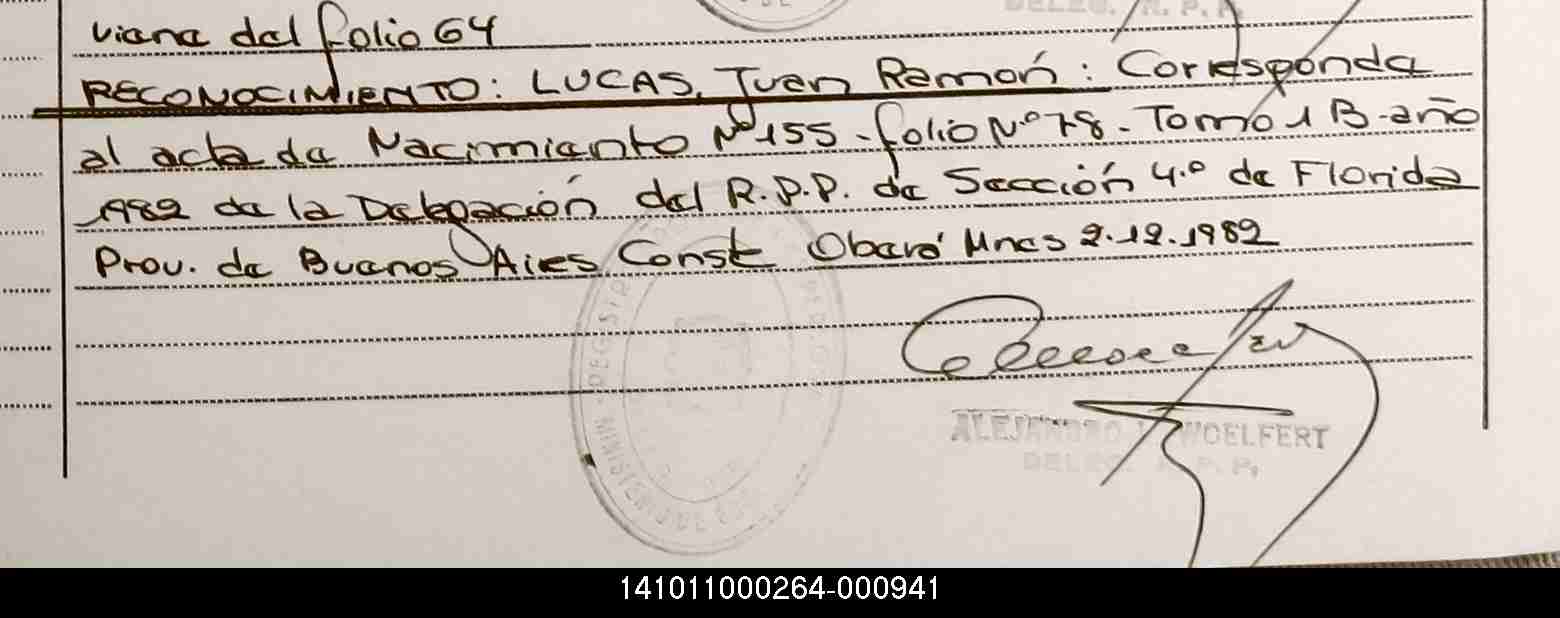 DELEG. R. P. P.
viene del folio 64
RECONOCIMIENTO: LUCAS, Juan Ramón: Corresponde
al acta de Nacimiento Nº 155 - folio Nº 78 - Tomo 1 B - año
1982 de la Delegación del R.P.P. de Sección 4.º de Florida
Prov. de Buenos Aires. Conste Oberá Mnes 2.12.1982
ALEJANDRO WOELFERT
DELEG. R. P. P.
141011000264-000941